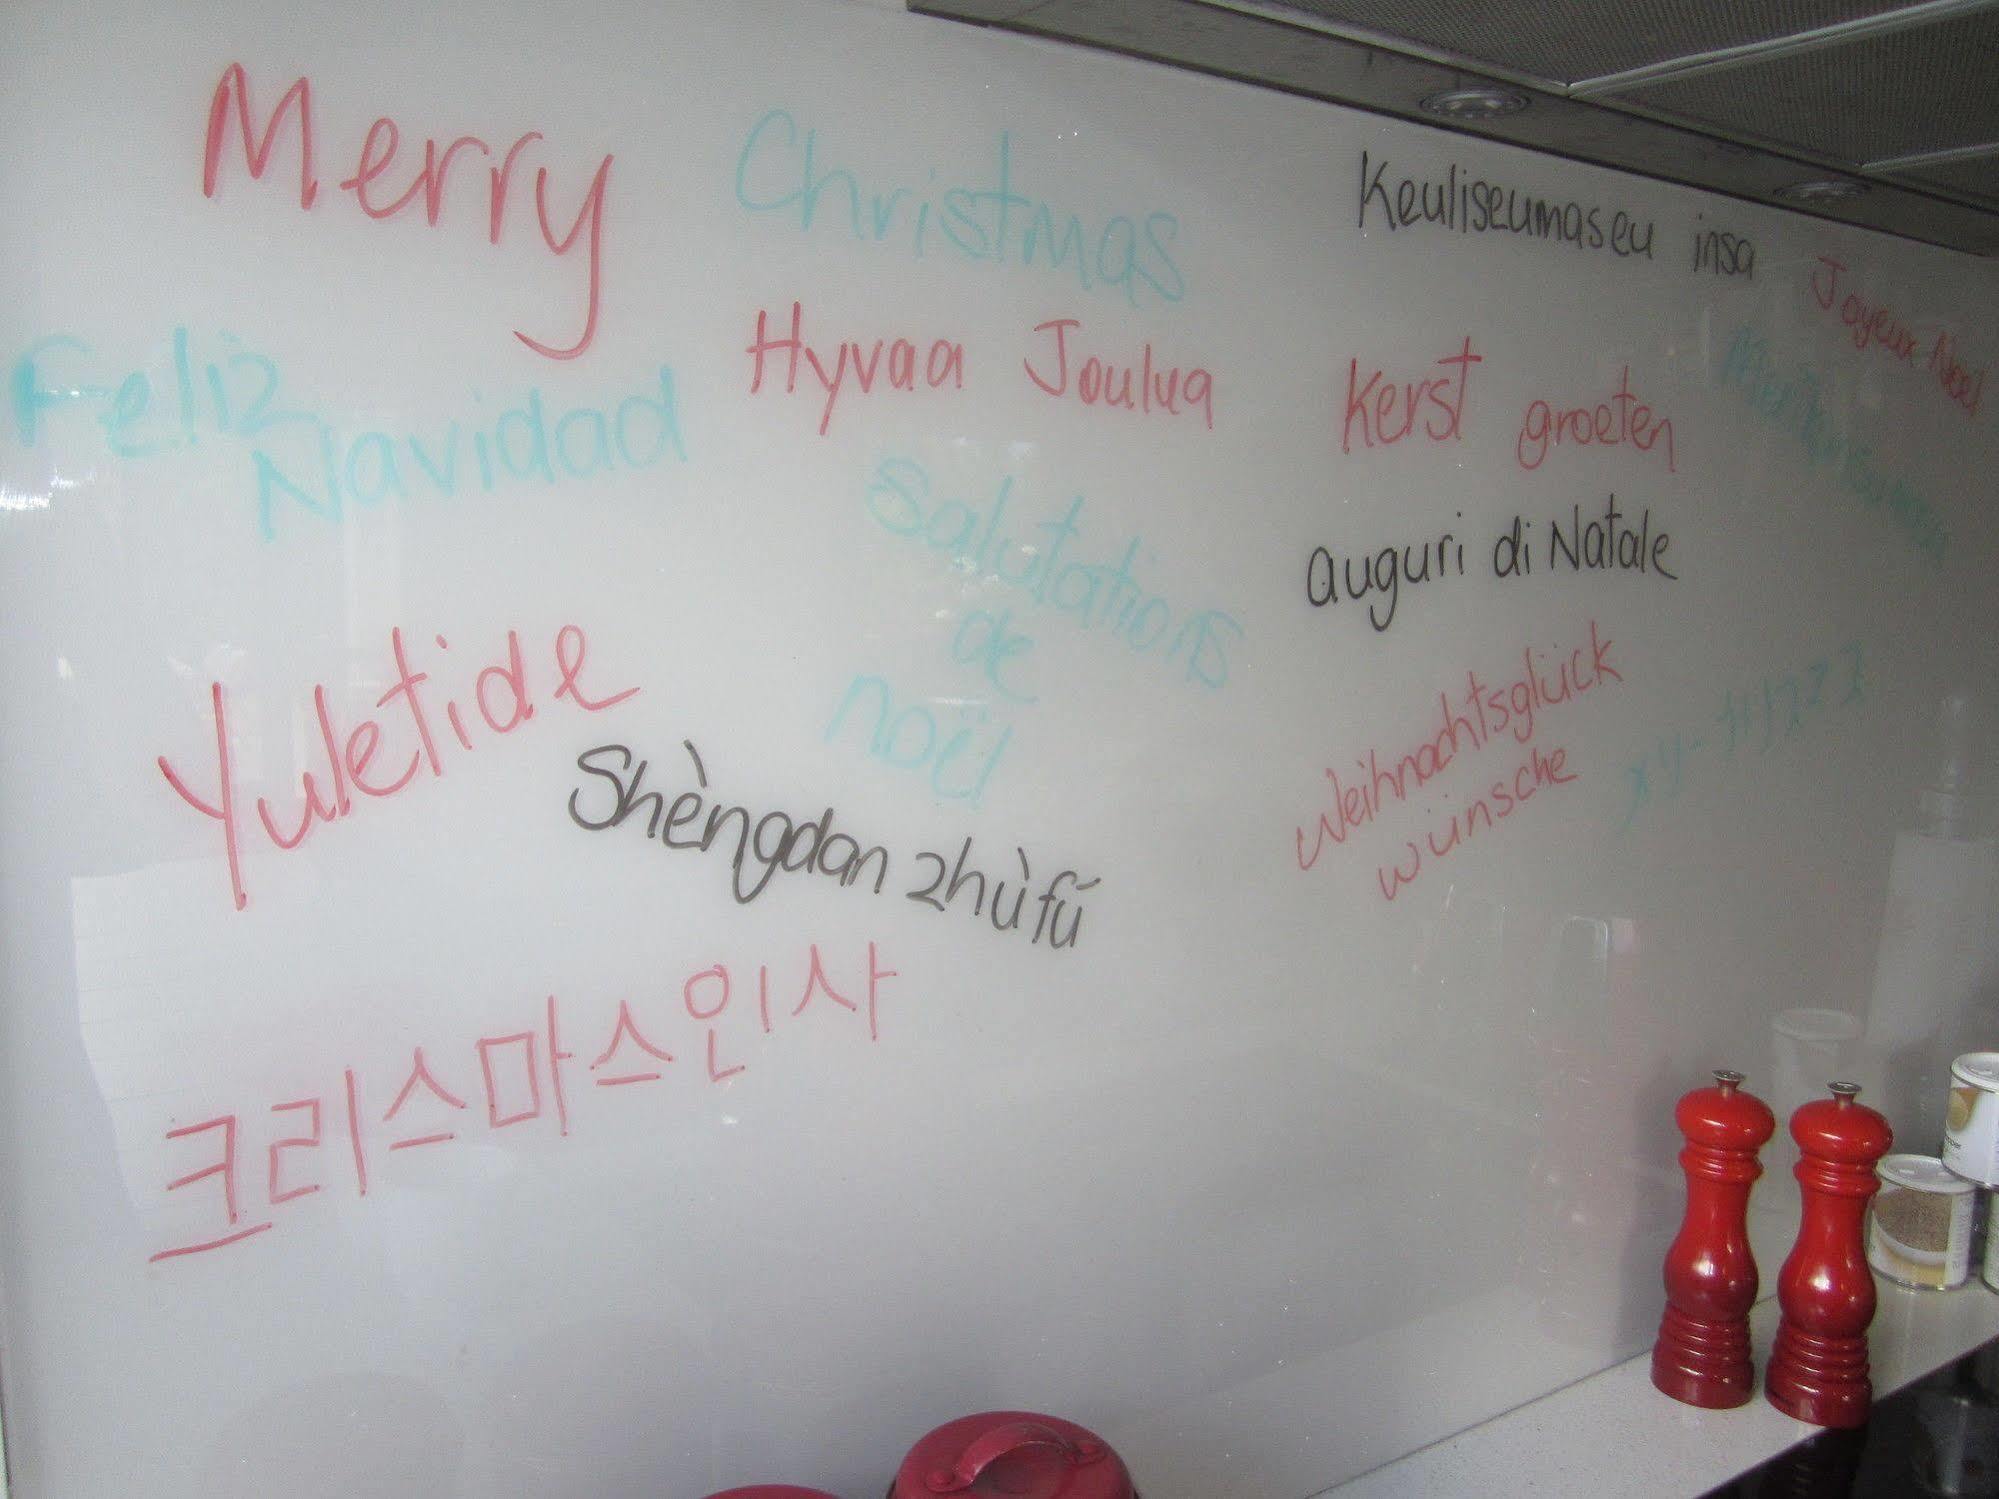 Merry Christmas
Keuliseumaseu insa
Joyeux Noel
Feliz
Navidad
Hyvaa Joulua
Kerst groeten
salutations
de
noël
auguri di Natale
Yuletide
Weihnachtsglück
wünsche
Shèngdan zhùfú
크리스마스인사